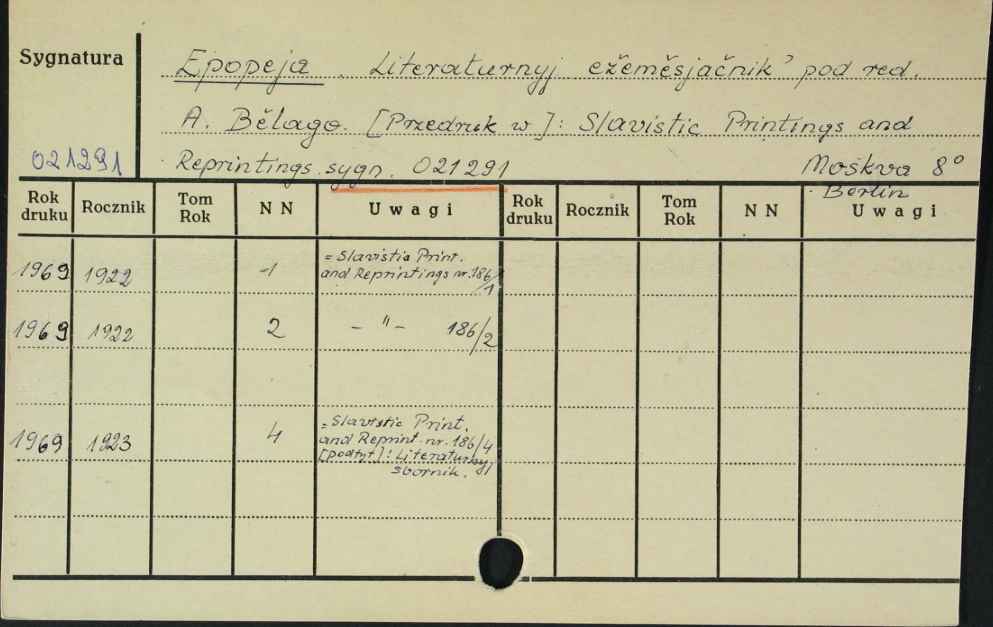 Sygnatura
Epopeja. Literaturnyj ežeměsjačnik' pod red.
A. Bělago. [Przedruk w]: Slavistic Printings and
021291
Reprintings sygn. 021291 Moskva 8°
Berlin
Rok druku Rocznik Tom Rok NN Uwagi Rok druku Rocznik Tom Rok NN Uwagi
1969 1922 1 = Slavistic Print.
and Reprintings nr. 186/1
1969 1922 2 — " — 186/2
1969 1923 4 = Slavistic Print.
and Reprint. nr. 186/4
[podtyt]: Literaturnyj
sbornik.